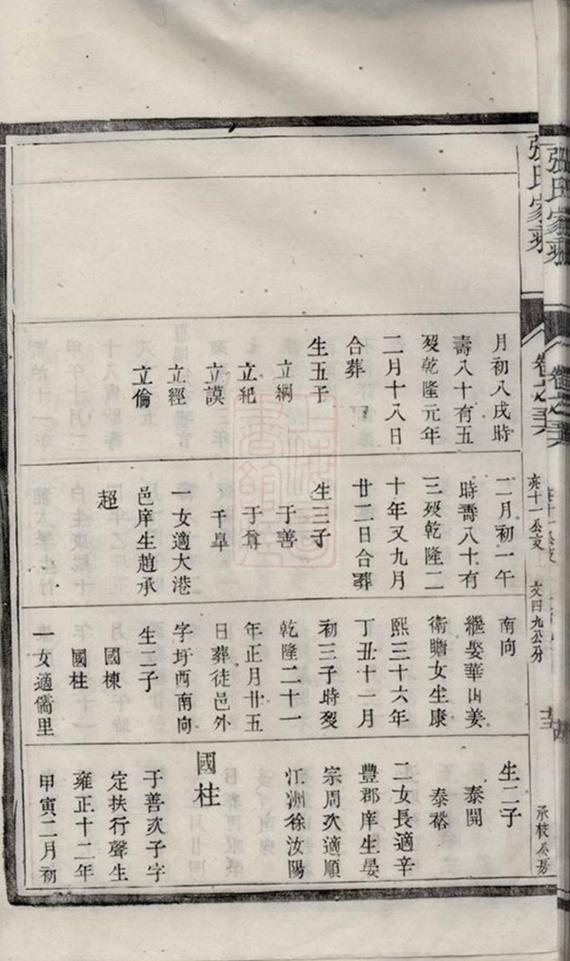 張氏家乘
月初八戌時
壽八十有五
歿乾隆元年
二月十八日
合葬
生五子
立綱
立紀
立謨
立經
立倫
二月初一午
時壽八十有
三歿乾隆二
十年又九月
廿二日合葬
生三子
于善
于尊
于臯
一女適大港
邑庠生趙承
超
南向
繼娶華山姜
衛瞻女生康
熙三十六年
丁丑十一月
初三子時歿
乾隆二十一
年正月廿五
日葬徒邑外
字圩西南向
生二子
國棟
國柱
一女適儒里
生二子
泰開
泰裕
二女長適辛
豐郡庠生晏
宗周次適順
江洲徐汝陽
國柱
于善次子字
定扶行聲生
雍正十二年
甲寅二月初